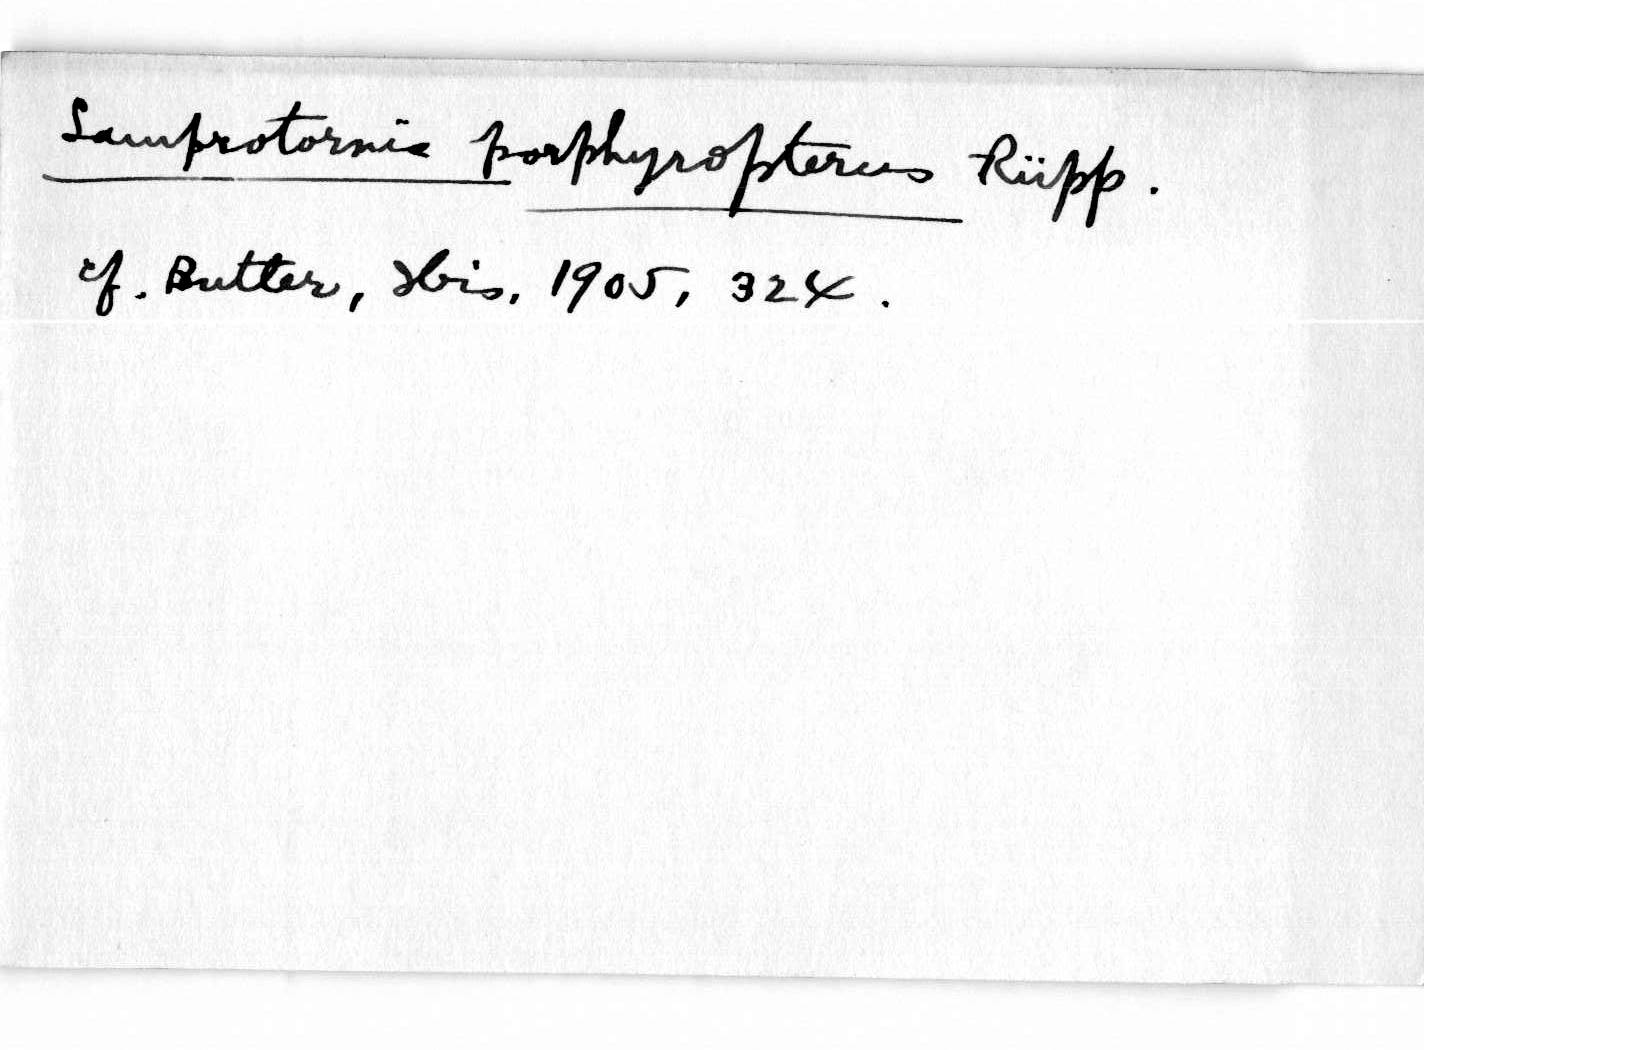 Lamprotornis porphyropterus Rüpp.
cf. Butler, Ibis, 1905, 324.